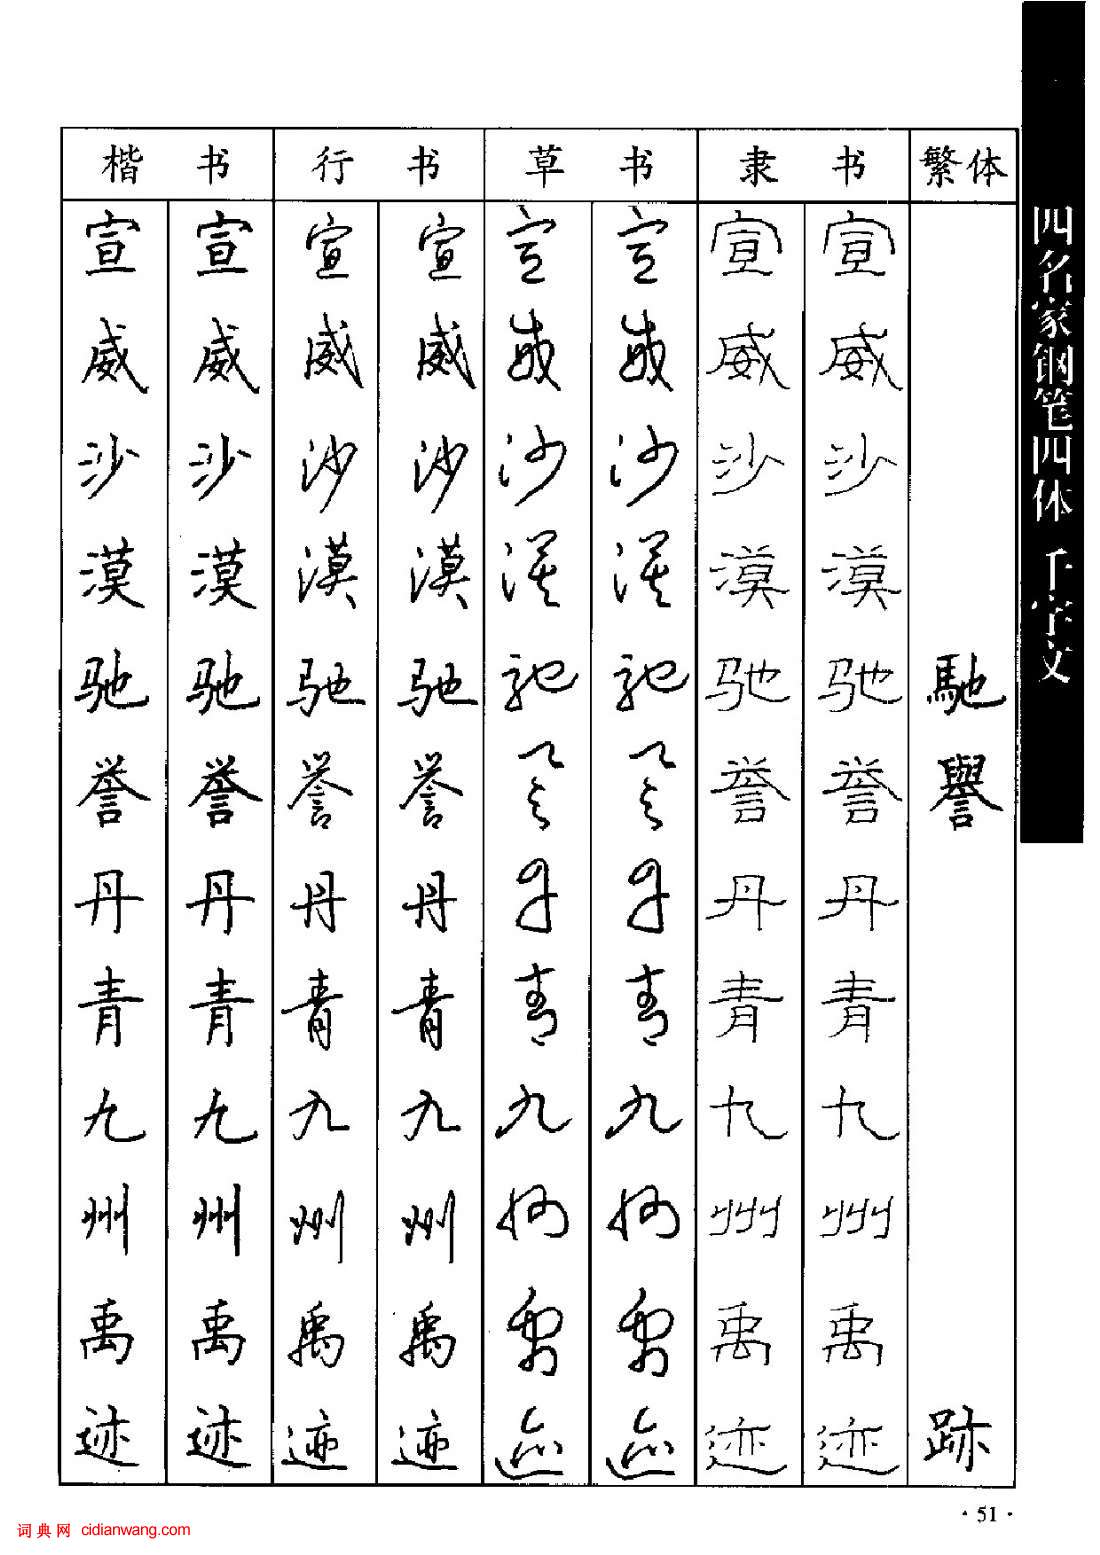 四名家钢笔四体 千字文
楷书 行书 草书 隶书 繁体
宣 宣 宣 宣 宣 宣 宣 宣
威 威 威 威 威 威 威 威
沙 沙 沙 沙 沙 沙 沙 沙
漠 漠 漠 漠 漠 漠 漠 漠
驰 驰 驰 驰 驰 驰 驰 驰 馳
誉 誉 誉 誉 誉 誉 誉 誉 譽
丹 丹 丹 丹 丹 丹 丹 丹
青 青 青 青 青 青 青 青
九 九 九 九 九 九 九 九
州 州 州 州 州 州 州 州
禹 禹 禹 禹 禹 禹 禹 禹
迹 迹 迹 迹 迹 迹 迹 迹 跡
·51·
词典网 cidianwang.com